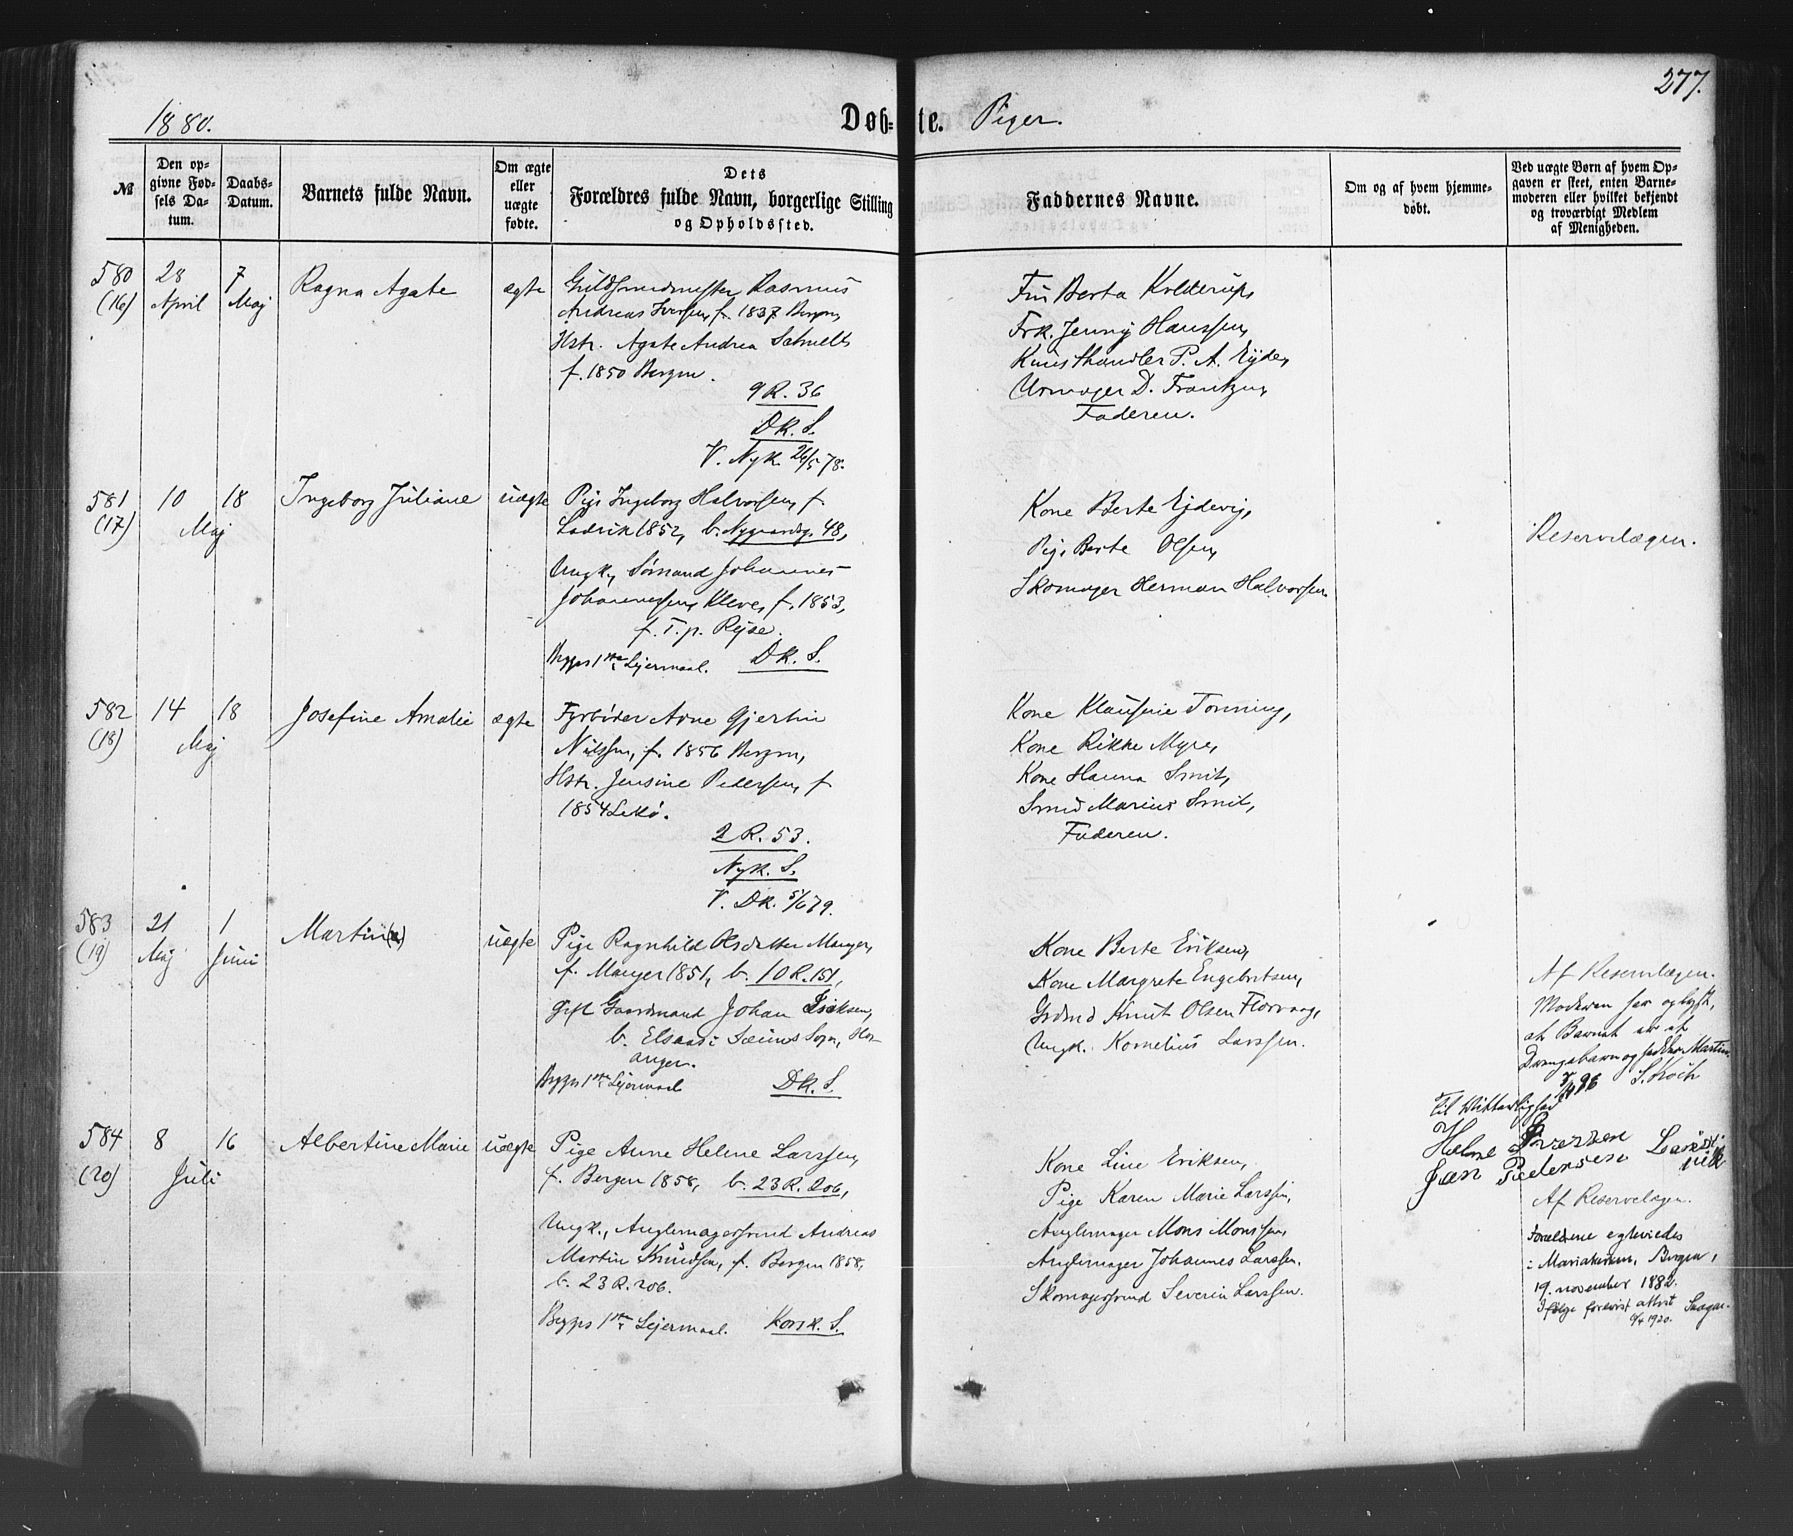 277.
1880.
Døb-te. Piger.
№
Den opgivne Fødsels Datum.
Daabs-Datum.
Barnets fulde Navn.
Om ægte eller uægte fødte.
Dets Forældres fulde Navn, borgerlige Stilling og Opholdssted.
Faddernes Navne.
Om og af hvem hjemmedøbt.
Ved uægte Børn af hvem Opgaven er skeet, enten Barnemoderen eller hvilket bekjendt og troværdigt Medlem af Menigheden.
580
(16)
28
April
7
Maj
Ragna Agate
ægte
Guldsmedmester Rasmus
Andreas Iversen, f. 1837 Bergen,
Hstr. Agate Andrea
f. 1850 Bergen.
9 R. 36
DK. S.
V. Nyk. 26/5 78.
Fru Berta Kolderup,
Frk. Jenny Hanssen,
Kunsthandler P. A. Eyde,
Urmager D. Frantzen,
Faderen.
581
(17)
10
18
Maj
Ingeborg Juliane
uægte
Pige Ingeborg Halvorsen, f.
Ladvik 1852, b. Nygaardsg. 48,
Ungk, Sømand Johannes
Johannesen, Kleve, f. 1853,
f. T. p. Rejse.
Begges 1ste Lejermaal. DK. S.
Kone Berte Ejdevig,
Pige Berte Olsen,
Skomager Herman Halvorsen.
Reservelægen.
582
(18)
14
18
Maj
Josefine Amalie
ægte
Fyrbøder Arne Gjertin
Nilssen, f. 1856 Bergen,
Hstr. Jensine Pedersen, f
1854 Lekø.
2 R. 53.
Nyk. S.
V. DK. 5/6 79.
Kone Klausine Tonning,
Kone Rikke Myre,
Kone Hanna Smit,
Smed Marius Smit,
Faderen.
583
(19)
21
Maj
1
Juni
Martin(a)
uægte
Pige Ragnhild Olsdatter Manger,
f. Manger 1851, b. 10 R. 151,
Gift Gaardmand Johan
b. i Sogn, Hos-
anger.
Begges 1ste Lejermaal DK. S.
Kone Berte Eriksen,
Kone Margrete Engebritsen,
Grdmd Knut Olsen Florvaag,
Ungk. Kornelius Larssen.
Af Reservelægen.
Moderen har oplyst,
at Barnet er et
Drengebarn og Martin.
96 S. Koch
Til Vitterlighed
Helne
Jan Pedersen
584
(20)
8
16
Juli
Albertine Marie
uægte
Pige Anne Helene Larssen,
f. Bergen 1858, b. 23 R. 206,
Ungk., Anglemagersvend Andreas
Martin Knudsen, f. Bergen 1858,
b. 23 R. 206.
Begges 1ste Lejermaal. Korsk. S.
Kone Line Eriksen,
Pige Karen Marie Larssen,
Anglemager Mons Monssen,
Anglemager Johannes Larssen.
Skomagersvend Severin Larssen.
Af Reservelægen.
Forældrene egteviedes
i Mariakirken, Bergen,
19. november 1882.
Ifølge forevist attest
1920.